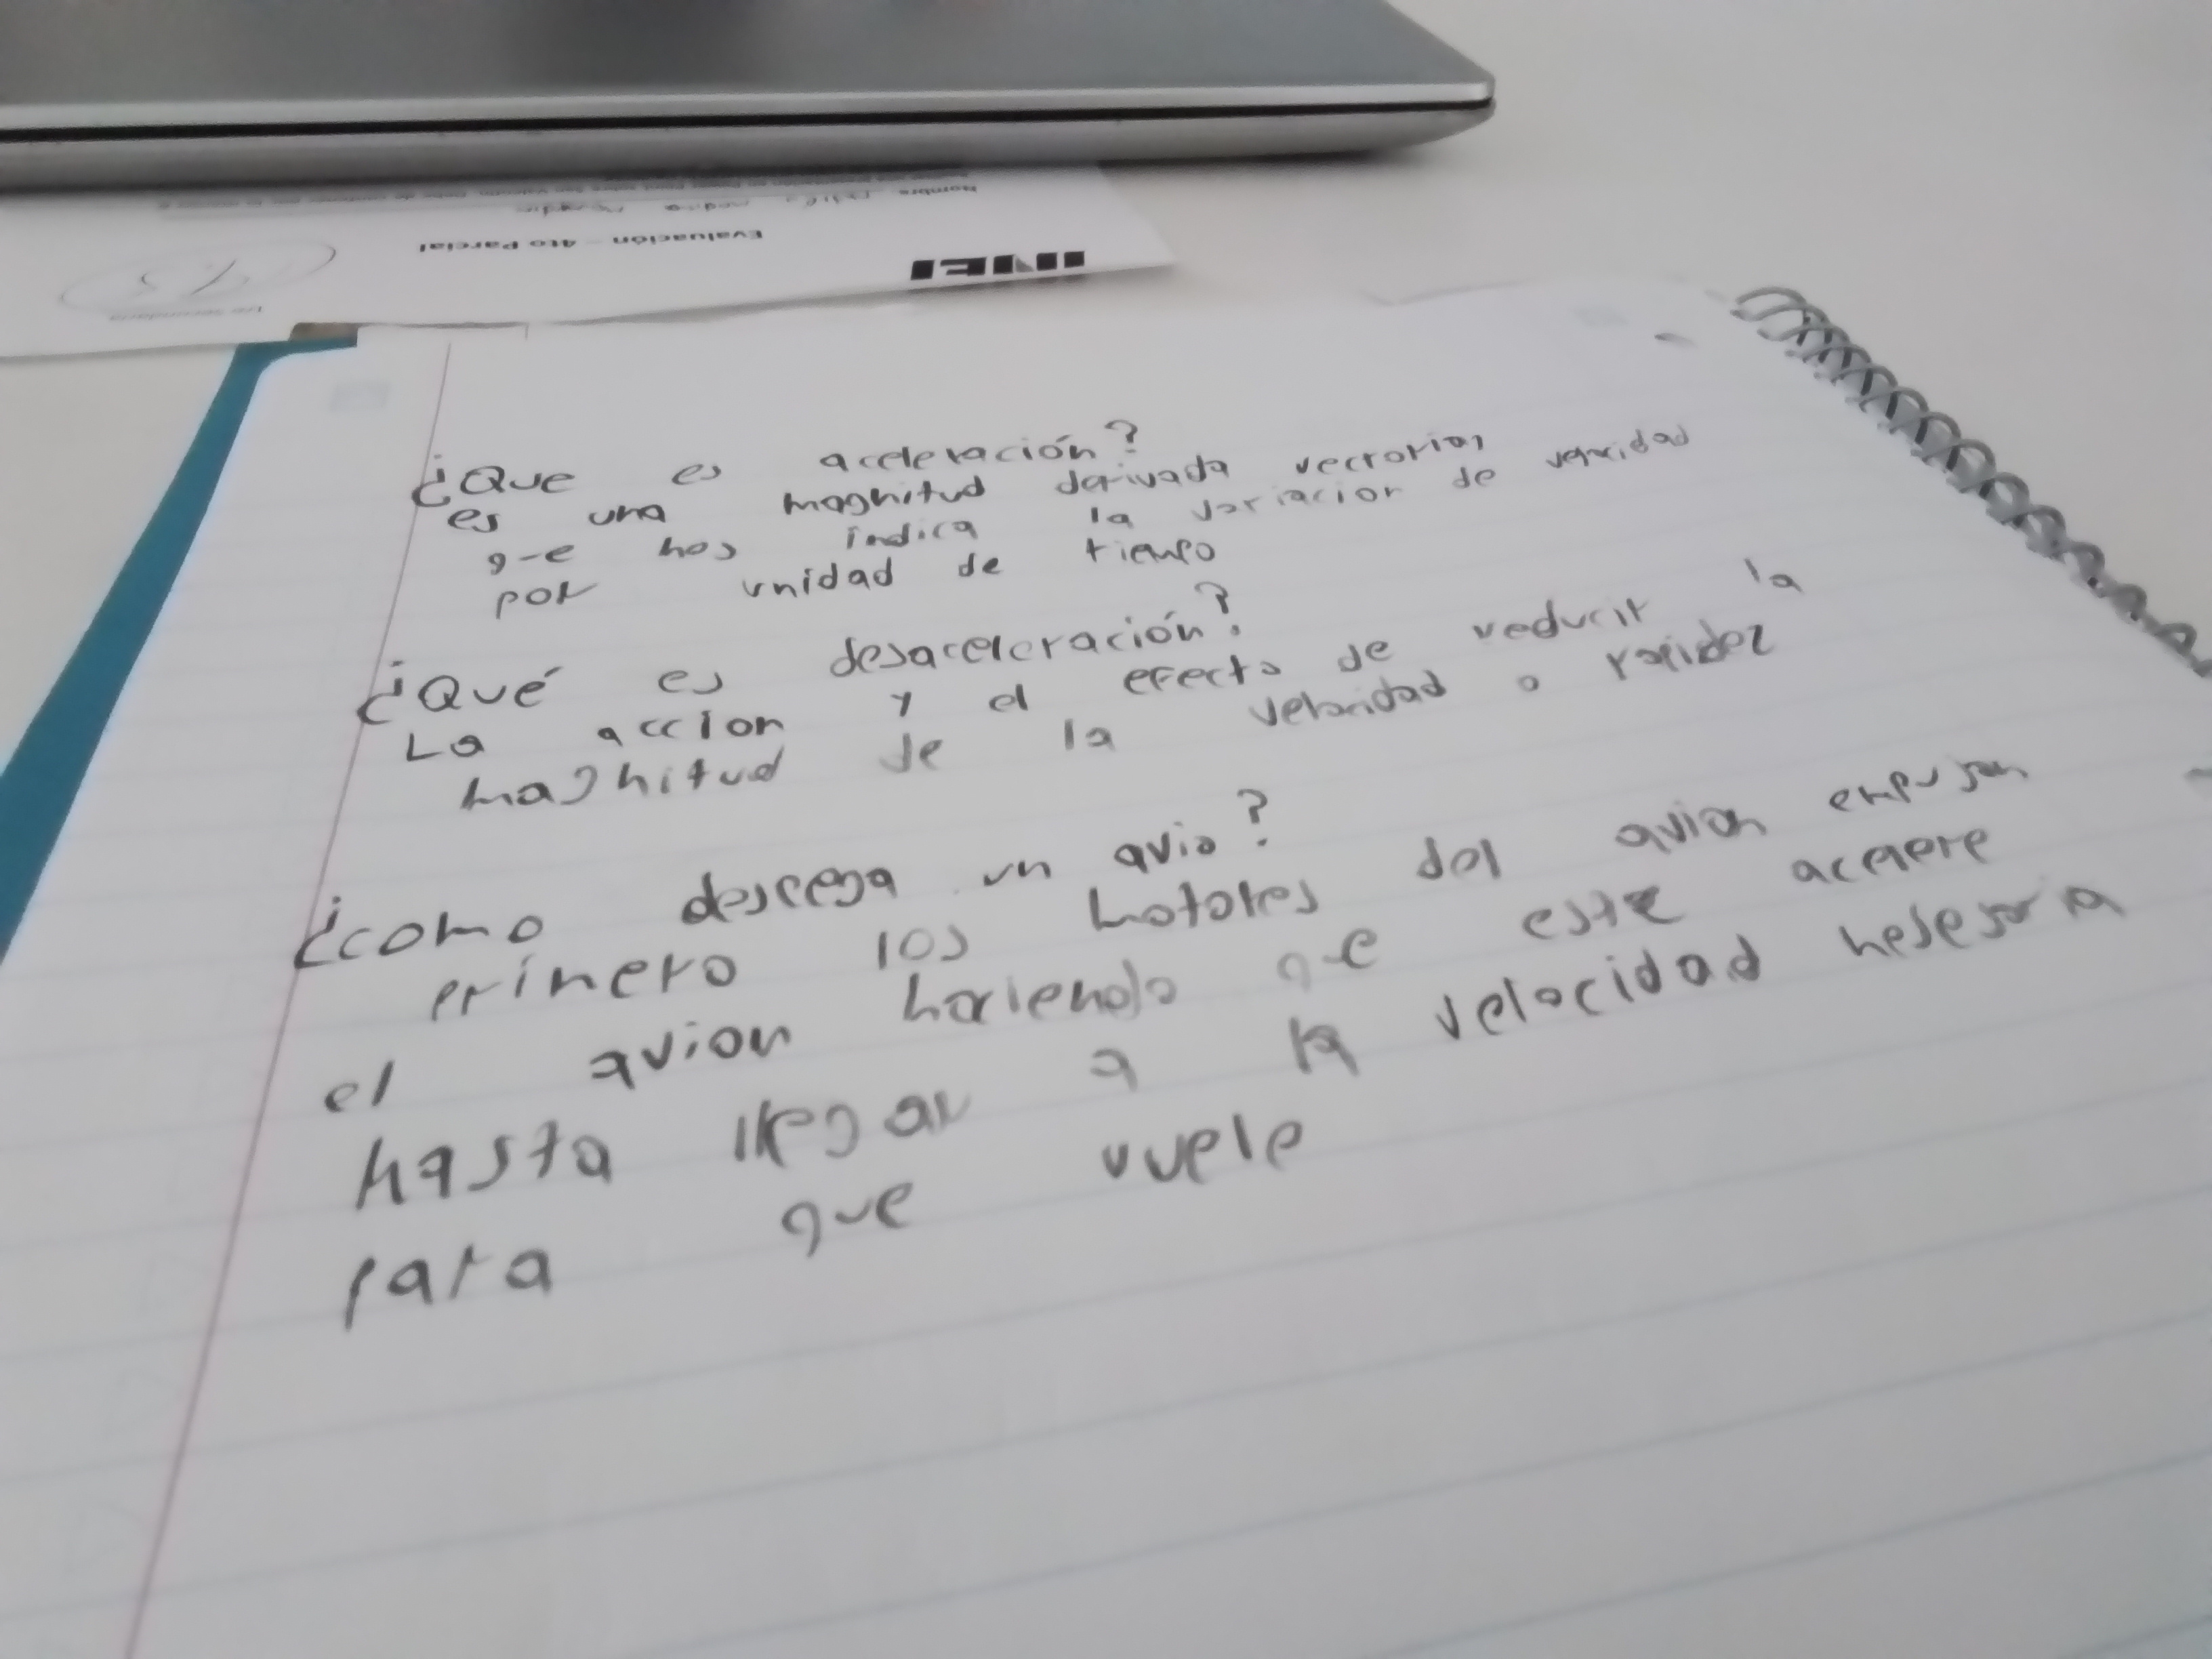 INEI
Evaluación - 4to Parcial
Nombre
¿Que es aceleración?
es una magnitud derivada vectorial
que nos indica la variacion de velocidad
por unidad de tiempo
¿Qué es desaceleración?
La accion y el efecto de reducir la
magnitud de la velocidad o rapidez
¿como descega un avio?
primero los motores del avion empujan
el avion haciendo que este acelere
hasta llegar a la velocidad nesesaria
para que vuele